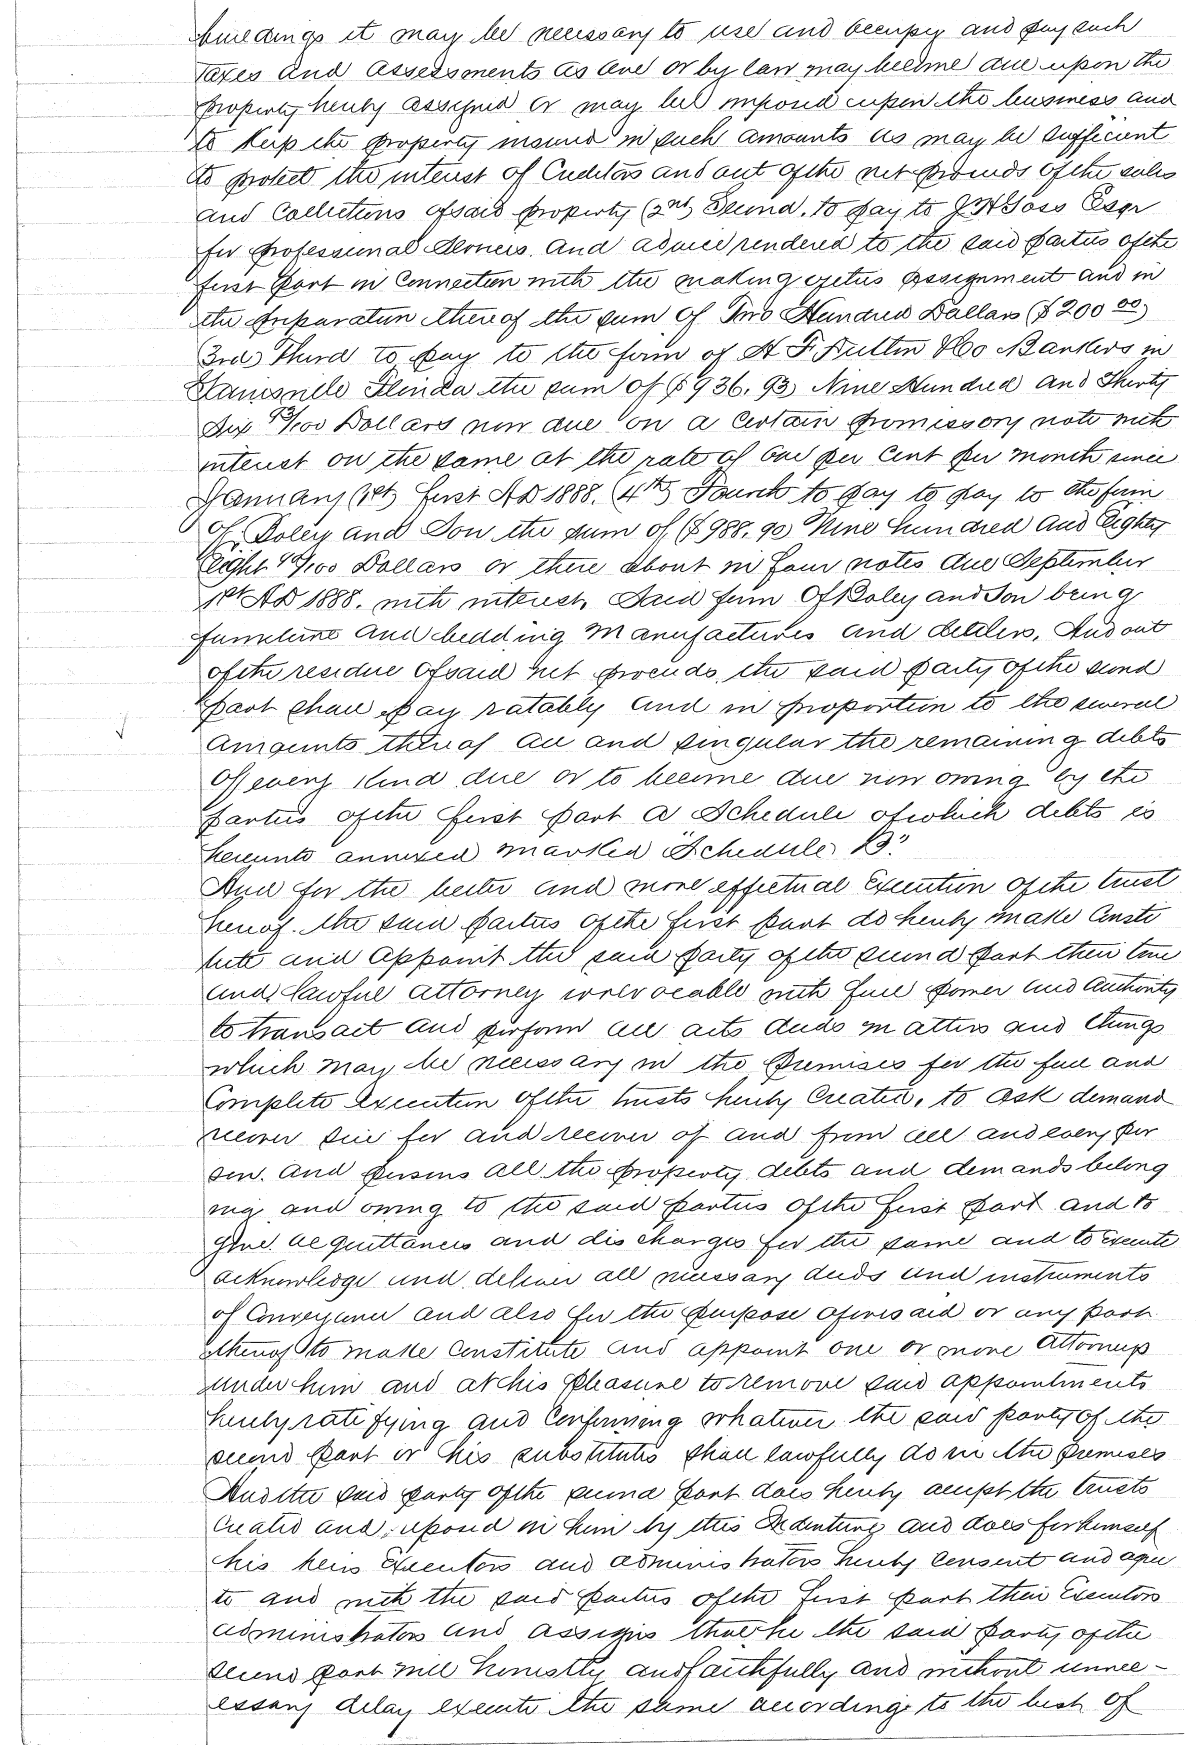 buildings it may be necessary to use and occupy and pay such
taxes and assessments as are or by law may become due upon the
property hereby assigned or may be imposed upon the business and
to keep the property insured in such amounts as may be sufficient
to protect the interest of Creditors and out of the net proceeds of the sales
and Collections of said property (2nd) Second. to pay to J H Goss Esqr
for professional Services. and advice rendered to the said parties of the
first part in Connection with the making of this assignment and in
the preparation thereof the sum of Two Hundred Dollars ($200 00)
(3rd) Third to pay to the firm of H F Dutton & Co Bankers in
Gainesville Florida the sum of ($936.93) Nine Hundred and Thirty
Six 93/100 Dollars now due on a certain promissory note with
interest on the same at the rate of one per cent per month since
January (1st) first AD 1888. (4th) Fourth to pay to pay to the firm
of Boley and Son the sum of ($988.90) Nine hundred and Eighty
Eight 90/100 Dollars or there about in four notes due September
1st AD 1888. with interest, Said firm Of Boley and Son being
furniture and bedding Manufactures and dealers. And out
of the residue of said net proceeds, the said party of the second
part shall pay ratably and in proportion to the several
amounts thereof all and singular the remaining debts
Of every Kind due or to become due now owing by the
parties of the first part a Schedule of which debts is
hereunto annexed marked "Schedule B"
And for the better and more effectual Execution of the trust
hereof. the said parties of the first part do hereby make Consti
tute and appoint the said party of the second part their true
and lawful attorney irrevocable with full power and Authority
to transact and perform all acts deeds matters and things
which may be necessary in the premises for the full and
Complete execution of the trusts hereby Created, to ask demand
recover sue for and recover of and from all and every per
son. and persons all the property, debts and demands belong
ing and owing to the said parties of the first part and to
give acquittances and discharges for the same and to Execute
acknowledge and deliver all necessary deeds and instruments
of Conveyance and also for the purpose aforesaid or any part
thereof to make Constitute and appoint one or more Attorneys
under him and at his pleasure to remove said appointments
hereby ratifying and Confirming whatever the said party of the
second part or his substitutes shall lawfully do in the premises
And the said party of the second part does hereby accept the trusts
Created and reposed in him by this Indenture and does for himself
his heirs Executors and administrators hereby Consent and agree
to and with the said parties of the first part their Executors
administrators and assigns that he the said party of the
second part will honestly and faithfully and without unnec-
essary delay execute the same according to the best of